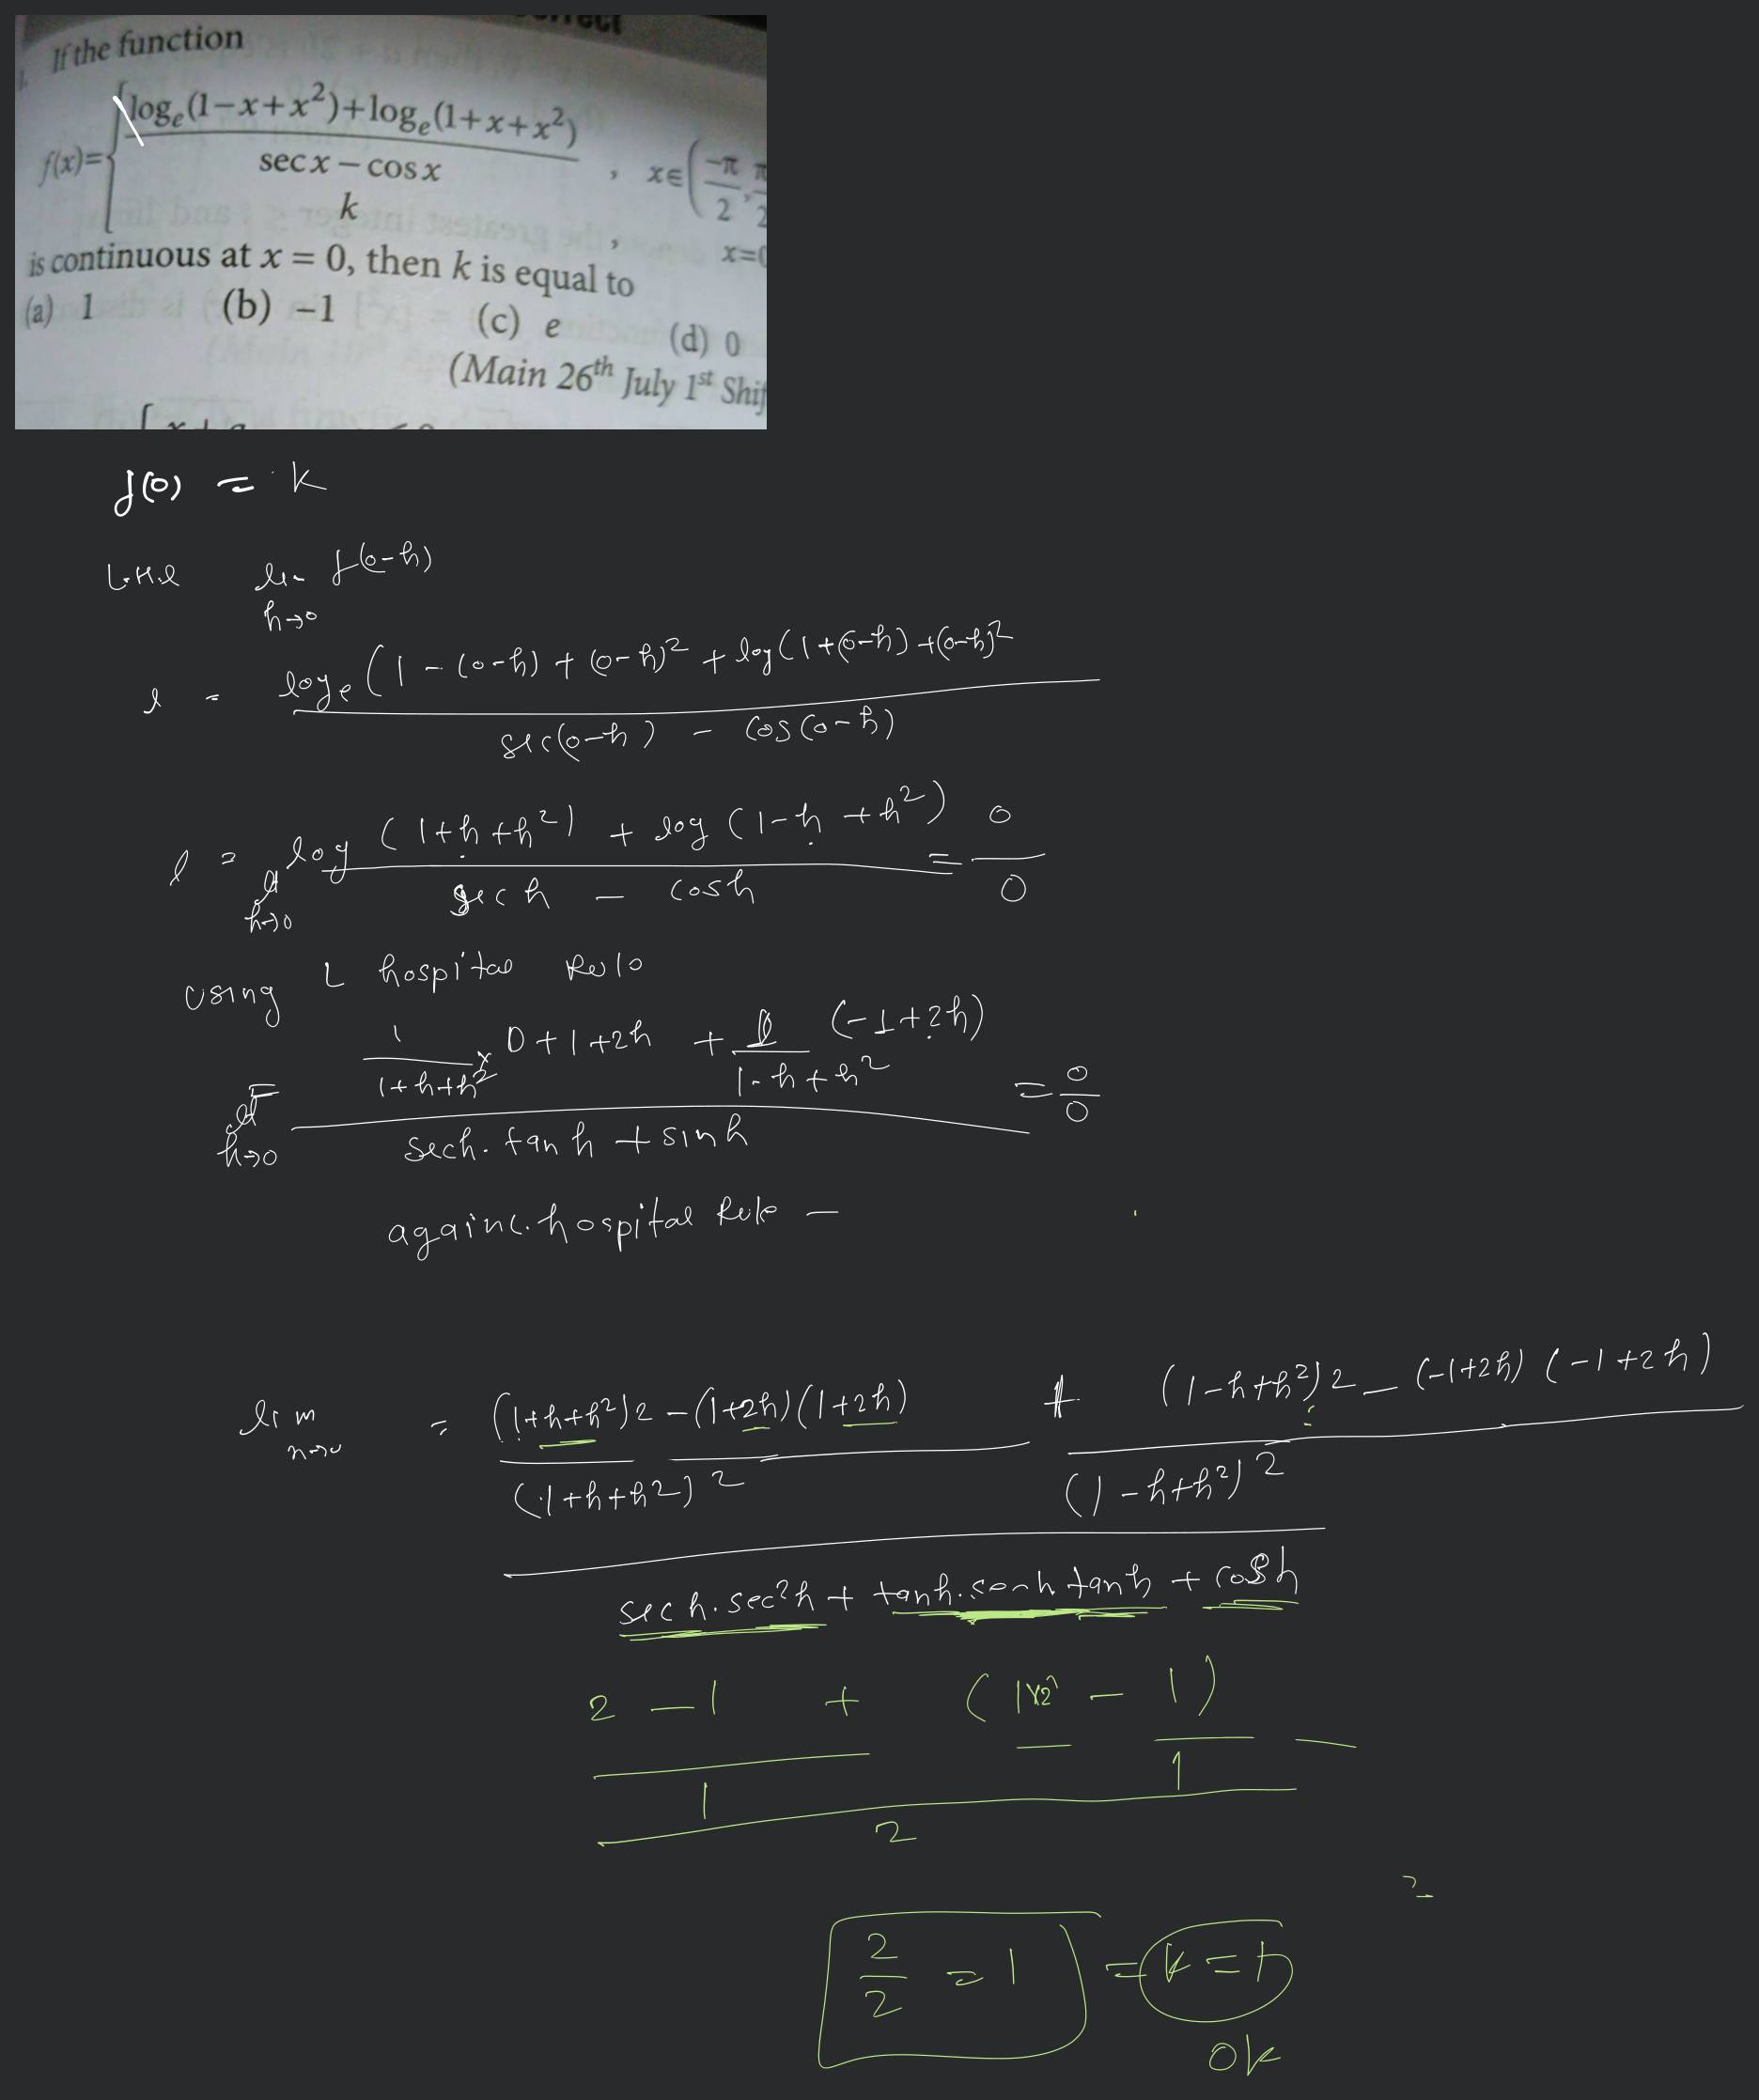 If the function
f(x)={ log_e(1−x+x²)+log_e(1+x+x²)
sec x − cos x , x∈(−π/2, π/2
k , x=0
is continuous at x = 0, then k is equal to
(a) 1 (b) −1 (c) e (d) 0
(Main 26th July 1st Shif
f(0) = k
L.H.L lim f(0-h)
h→0
l = log_e (1 - (0-h) + (0-h)² + log (1+(0-h) +(0-h)²
sec(0-h) - cos(0-h)
l = lt log (1+h+h²) + log (1-h+h²) = 0/0
h→0 sech - cosh
Using L hospital Rule
1/(1+h+h²) × 0+1+2h + 1/(1-h+h²) (-1+2h)
lt = 0/0
h→0 sech. tanh + sinh
again L. hospital Rule —
lim = (1+h+h²)2 -(1+2h)(1+2h) + (1-h+h²)2 - (-1+2h)(-1+2h)
(1+h+h²)² (1-h+h²)²
sech.sec²h + tanh.sech.tanh + cosh
2 - 1 + (1×2 - 1)
1 1
2
2/2 = 1 = k = 1
ok